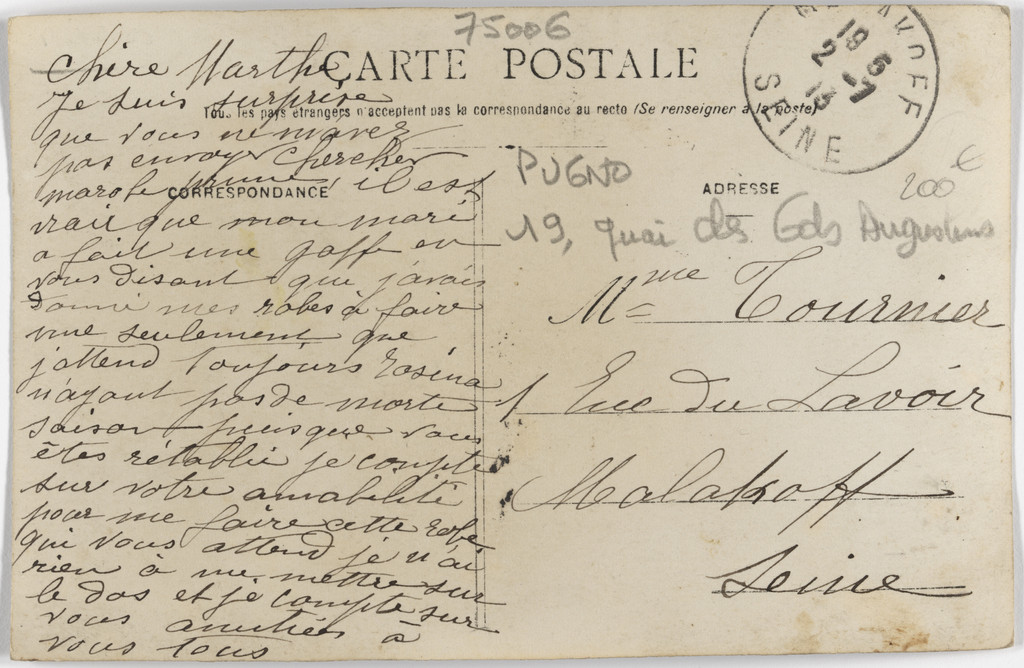 75006
CARTE POSTALE
Tous les pays étrangers n'acceptent pas la correspondance au recto (Se renseigner à la poste)
MALAKOFF
19 5
2 -7
13
SEINE
CORRESPONDANCE
ADRESSE
PUGNO
200 €
19, quai des Gds Augustins
Chère Marthe
Je suis surprise
que vous ne mavez
pas envoyer chercher
marobe prune, il est
vrai que mon mari
a fait une gaff en
vous disant que j'avais
donné mes robes à faire
une seulement que
j'attend toujours Rosina
n'ayant pas de morte
saison puisque vous
êtes rétablie je compte
sur votre amabilité
pour me faire cette robe
qui vous attend je n'ai
rien à me mettre sur
le dos et je compte sur
vous amitiés à
vous tous
Mme Tournier
1 Rue du Lavoir
Malakoff
Seine